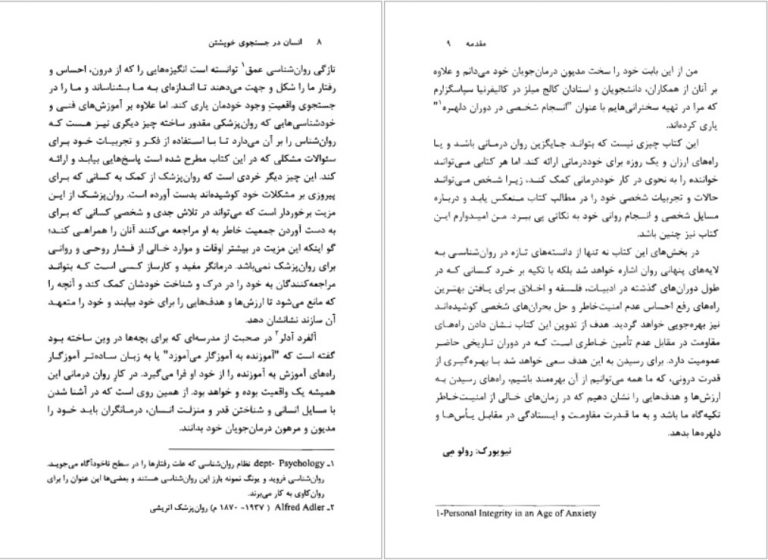 ۸ انسان در جستجوی خویشتن
تازگی روان‌شناسی عمق۱ توانسته است انگیزه‌هایی را که از درون، احساس و
رفتار ما را شکل و جهت می‌دهند تا اندازه‌ای به ما بشناساند و ما را در
جستجوی واقعیتِ وجود خودمان یاری کند. اما علاوه بر آموزش‌های فنی و
خودشناسی‌هایی که روان‌پزشکی مقدور ساخته چیز دیگری نیز هست که
روان‌شناس را بر آن می‌دارد تا با استفاده از فکر و تجربیات خود برای
سئوالات مشکلی که در این کتاب مطرح شده است پاسخ‌هایی بیابد و ارائه
کند. این چیز دیگر خردی است که روان‌پزشک از کمک به کسانی که برای
پیروزی بر مشکلات خود کوشیده‌اند بدست آورده است. روان‌پزشک از این
مزیت برخوردار است که می‌تواند در تلاش جدی و شخصیِ کسانی که برای
به دست آوردن جمعیت خاطر به او مراجعه می‌کنند آنان را همراهی کند؛
گو اینکه این مزیت در بیشتر اوقات و موارد خالی از فشار روحی و روانی
برای روان‌پزشک نمی‌باشد. درمانگر مفید و کارساز کسی است که بتواند
مراجعه‌کنندگان به خود را در درک و شناخت خودشان کمک کند و آنچه را
که مانع می‌شود تا ارزش‌ها و هدف‌هایی را برای خود بیابند و خود را متعهد
آن سازند نشانشان دهد.
آلفرد آدلر۲ در صحبت از مدرسه‌ای که برای بچه‌ها در وین ساخته بود
گفته است که "آموزنده به آموزگار می‌آموزد" یا به زبان ساده‌تر آموزگار
راه‌های آموزش به آموزنده را از خود او فرا می‌گیرد. در کار روان درمانی این
همیشه یک واقعیت بوده و خواهد بود. از همین روی است که در آشنا شدن
با مسایل انسانی و شناختن قدر و منزلت انسان، درمانگران باید خود را
مدیون و مرهون درمان‌جویان خود بدانند.
۱ـ dept- Psychology نظام روان‌شناسی که علت رفتارها را در سطح ناخودآگاه می‌جوید.
روان‌شناسی فروید و یونگ نمونه بارز این روان‌شناسی هستند و بعضی‌ها این عنوان را برای
روان‌کاوی به کار می‌برند.
۲ـ Alfred Adler ( ۱۹۳۷- ۱۸۷۰ م) روان‌پزشک اتریشی
مقدمه ۹
من از این بابت خود را سخت مدیون درمان‌جویان خود می‌دانم و علاوه
بر آنان از همکاران، دانشجویان و استادان کالج میلز در کالیفرنیا سپاسگزارم
که مرا در تهیه سخنرانی‌هایم با عنوان "انسجام شخصی در دوران دلهره۱"
یاری کرده‌اند.
این کتاب چیزی نیست که بتواند جایگزین روان درمانی باشد و یا
راه‌های ارزان و یک روزه برای خوددرمانی ارائه کند. اما هر کتابی می‌تواند
خواننده را به نحوی در کار خوددرمانی کمک کند، زیرا شخص می‌تواند
حالات و تجربیات شخصی خود را در مطالب کتاب منعکس یابد و درباره
مسایل شخصی و انسجام روانی خود به نکاتی پی ببرد. من امیدوارم این
کتاب نیز چنین باشد.
در بخش‌های این کتاب نه تنها از دانسته‌های تازه در روان‌شناسی به
لایه‌های پنهانی روان اشاره خواهد شد بلکه با تکیه بر خرد کسانی که در
طول دوران‌های گذشته در ادبیات، فلسفه و اخلاق برای یافتن بهترین
راه‌های رفع احساس عدم امنیت‌خاطر و حل بحران‌های شخصی کوشیده‌اند
نیز بهره‌جویی خواهد گردید. هدف از تدوین این کتاب نشان دادن راه‌های
مقاومت در مقابل عدم تأمین خاطری است که در دوران تاریخی حاضر
عمومیت دارد. برای رسیدن به این هدف سعی خواهد شد با بهره‌گیری از
قدرت درونی، که ما همه می‌توانیم از آن بهره‌مند باشیم، راه‌های رسیدن به
ارزش‌ها و هدف‌هایی را نشان دهیم که در زمان‌های خالی از امنیت‌خاطر
تکیه‌گاه ما باشد و به ما قدرت مقاومت و ایستادگی در مقابل یأس‌ها و
دلهره‌ها بدهد.
نیویورک: رولو مِی
1-Personal Integrity in an Age of Anxiety